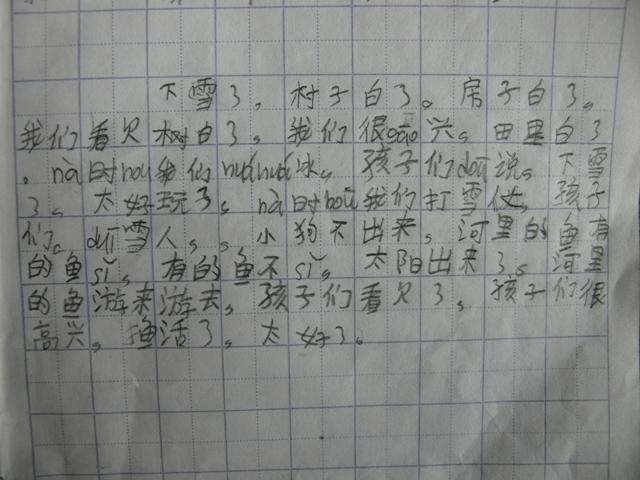 下雪了。村子白了。房子白了。
我们看见树白了。我们很gāo兴。田里白了
。nà时hou我们huáhuá冰。孩子们dōu说。下雪
了。太好玩了。nà时hou我们打雪仗。孩子
们。duī雪人。。小狗不出来。河里的鱼有
的鱼sǐ。有的鱼不sǐ。太阳出来了。河里
的鱼游来游去。孩子们看见了。孩子们很
高兴。鱼活了。太好了。